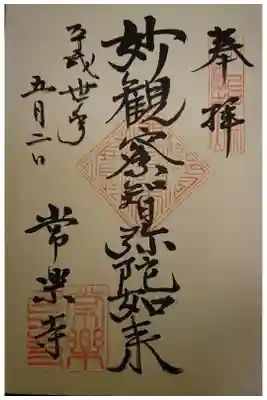 奉拝
妙観察智弥陀如来
平成丗年
五月二日
常楽寺